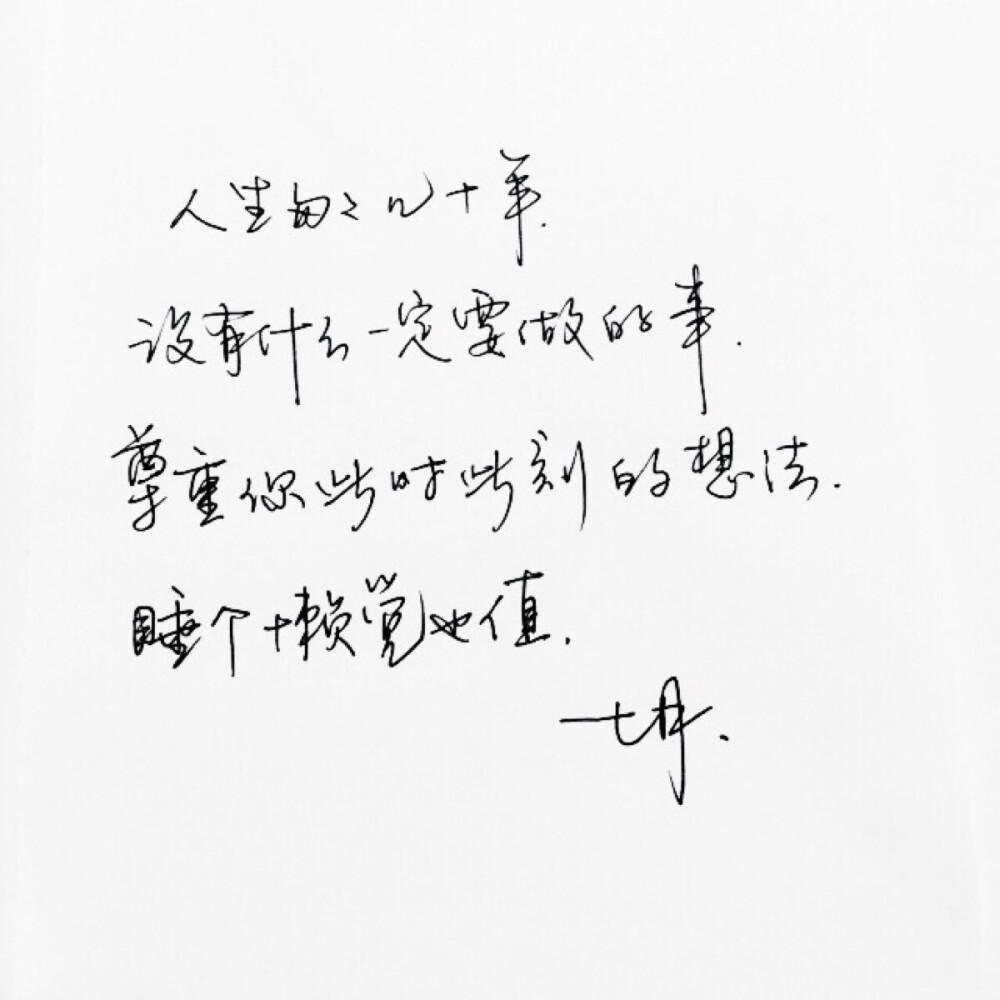 人生匆匆几十年.
没有什么一定要做的事.
尊重你此时此刻的想法.
睡个懒觉也值.